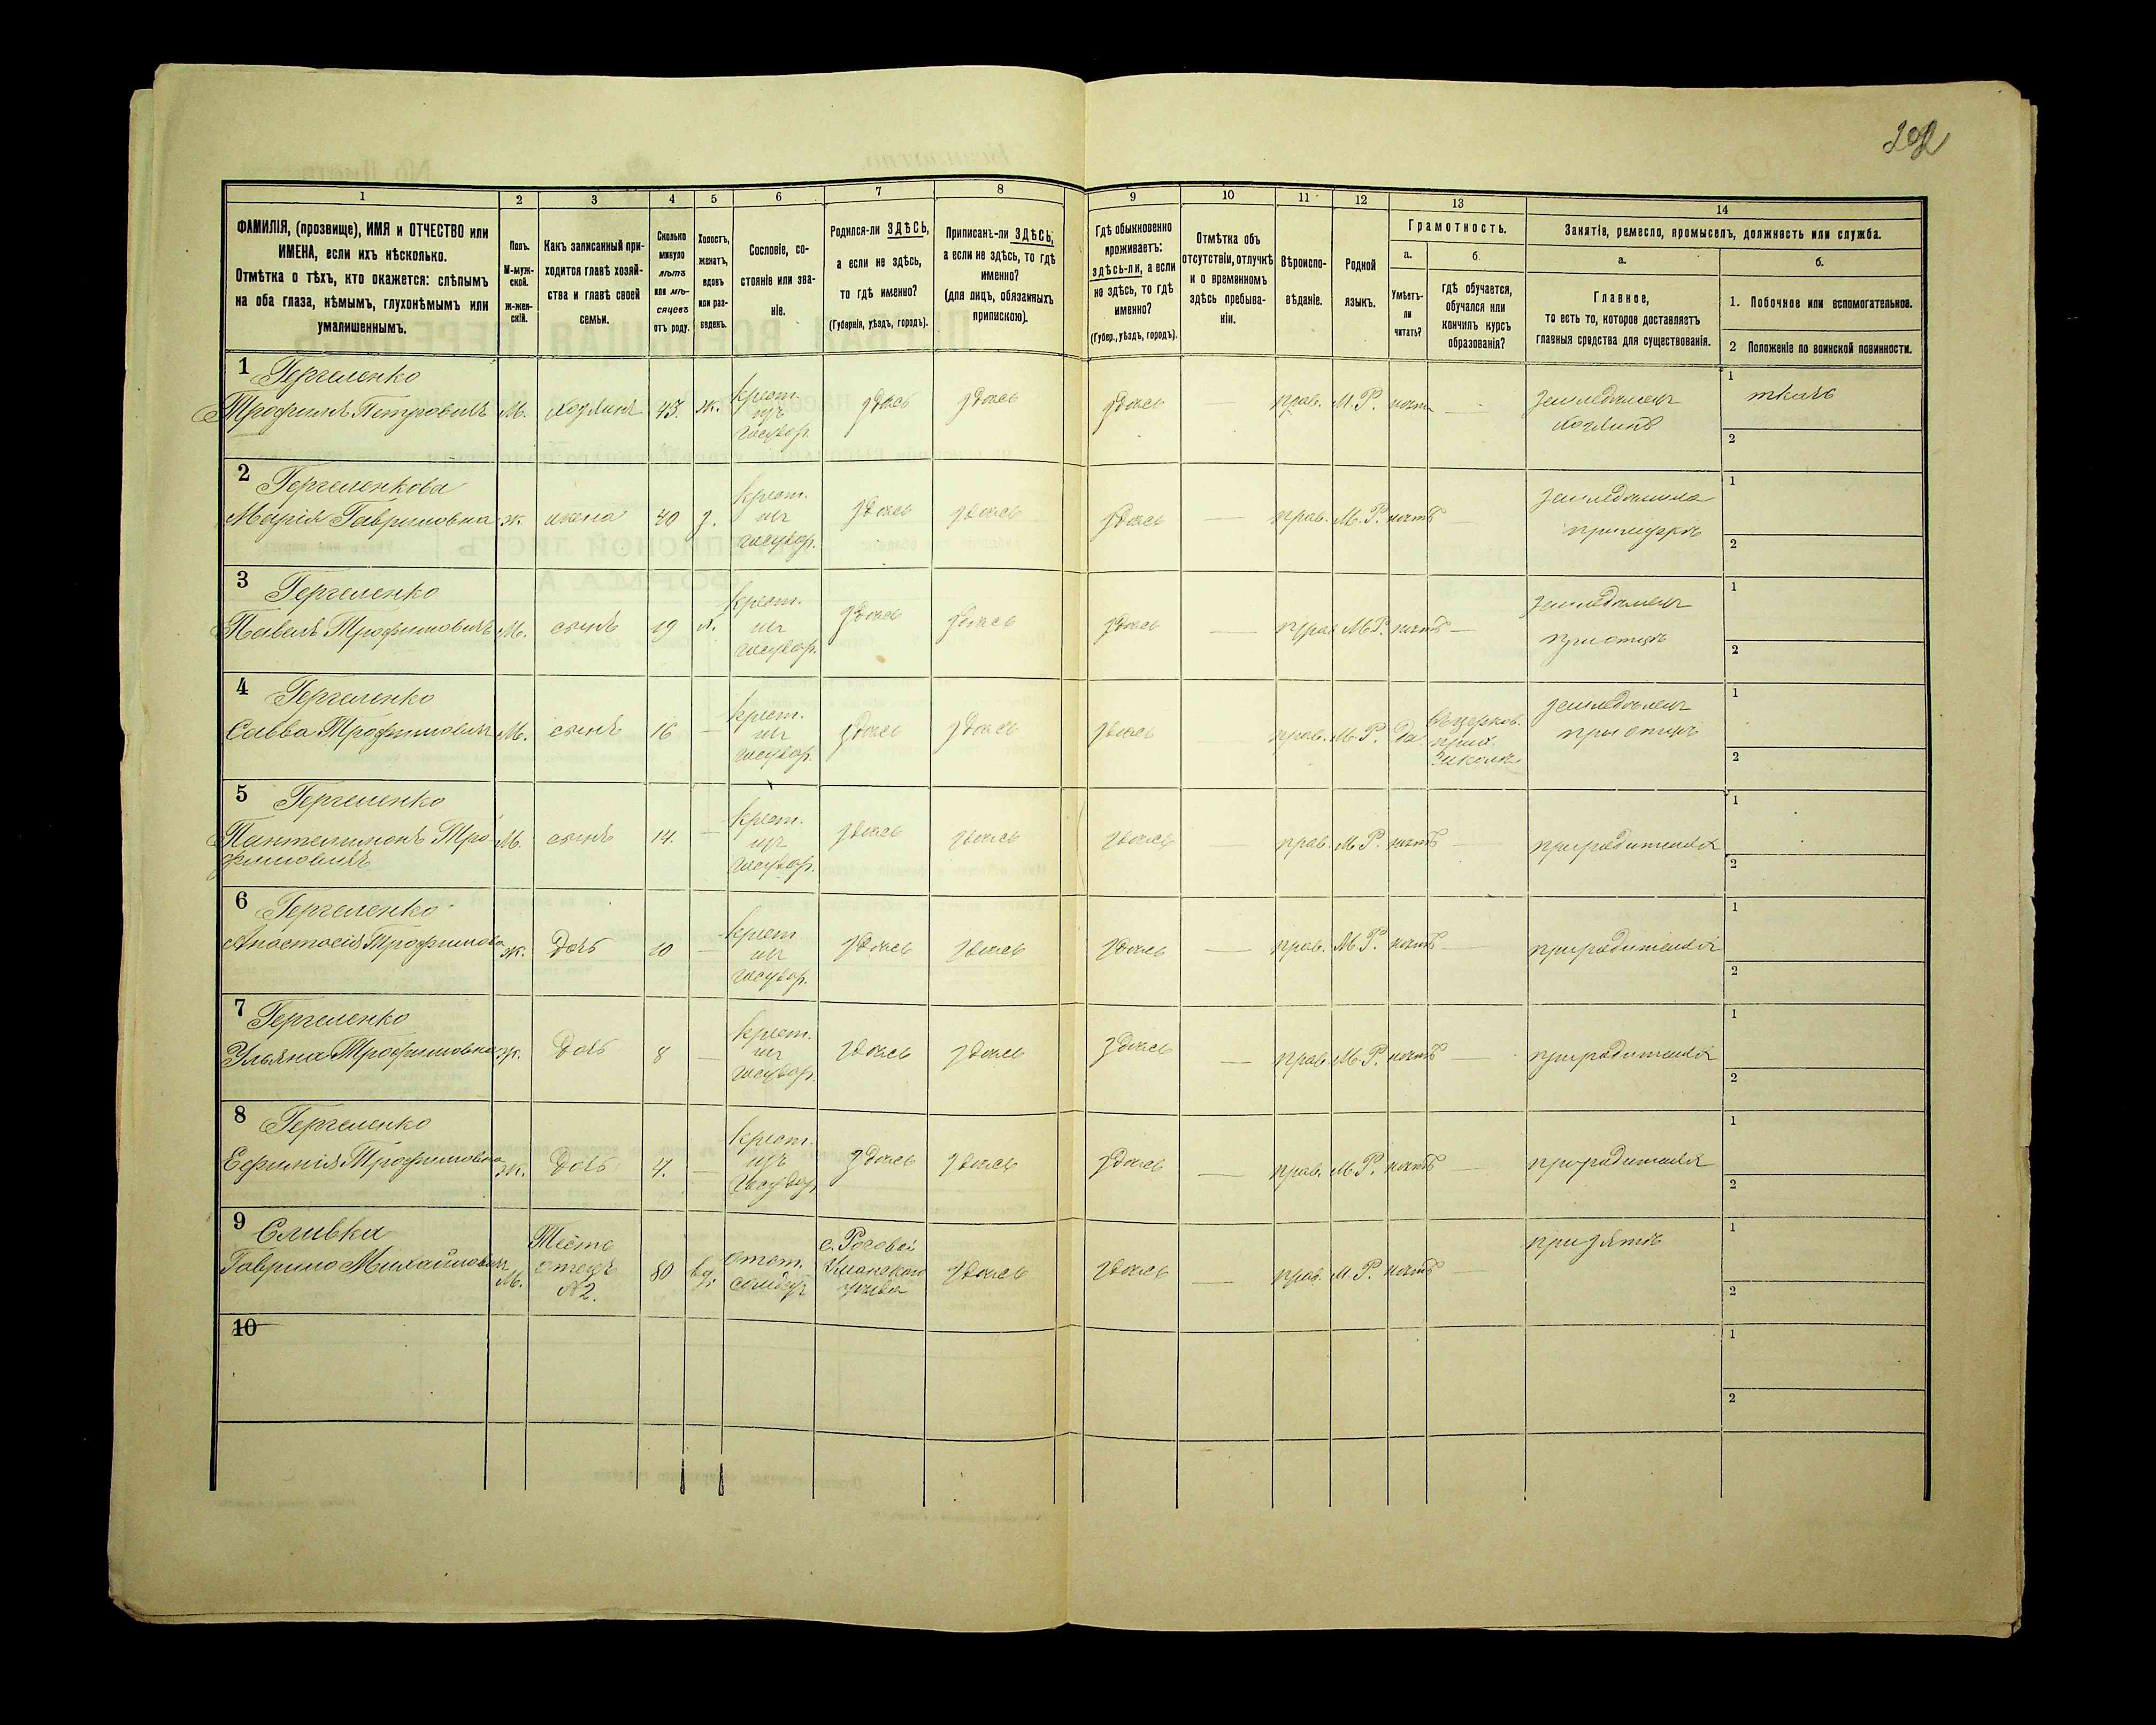 202
1
2
3
4
5
6
7
8
9
10
11
12
13
14
ФАМИЛІЯ, (прозвище), ИМЯ и ОТЧЕСТВО или
ИМЕНА, если ихъ нѣсколько.
Отмѣтка о тѣхъ, кто окажется: слѣпымъ
на оба глаза, нѣмымъ, глухонѣмымъ или
умалишеннымъ.
Полъ.
М-муж-
ской.
Ж-жен-
скій.
Какъ записанный при-
ходится главѣ хозяй-
ства и главѣ своей
семьи.
Сколько
минуло
лѣтъ
или мѣ-
сяцевъ
отъ роду.
Холостъ,
женатъ,
вдовъ
или раз-
веденъ.
Сословіе, со-
стояніе или зва-
ніе.
Родился-ли ЗДѢСЬ,
а если не здѣсь,
то гдѣ именно?
(Губернія, уѣздъ, городъ).
Приписанъ-ли ЗДѢСЬ,
а если не здѣсь, то гдѣ
именно?
(для лицъ, обязанныхъ
припискою).
Гдѣ обыкновенно
проживаетъ:
здѣсь-ли, а если
не здѣсь, то гдѣ
именно?
(Губер., уѣздъ, городъ).
Отмѣтка объ
отсутствіи, отлучкѣ
и о временномъ
здѣсь пребыва-
ніи.
Вѣроиспо-
вѣданіе.
Родной
языкъ.
Грамотность.
а.
Умѣетъ-
ли
читать?
б.
гдѣ обучается,
обучался или
кончилъ курсъ
образованія?
Занятія, ремесло, промыселъ, должность или служба.
а.
Главное,
то есть то, которое доставляетъ
главныя средства для существованія.
б.
1. Побочное или вспомогательное.
2 Положеніе по воинской повинности.
1 Гергеленко
Трофимъ Петровичъ М. хозяинъ 45. ж. крест. изъ государ. здѣсь здѣсь здѣсь — прав. М.Р. нѣтъ — земледѣлецъ хозяинъ 1 ткачъ
2
2 Гергеленкова
Марія Гавриловна ж. жена 40 з. крест. изъ государ. здѣсь здѣсь здѣсь — прав. М.Р. нѣтъ — земледѣлица при мужѣ 1
2
3 Гергеленко
Павелъ Трофимовичъ М. сынъ 19 х. крест. изъ государ. здѣсь здѣсь здѣсь — прав М.Р. нѣтъ — земледѣлецъ при отцѣ 1
2
4 Гергеленко
Савва Трофимовичъ М. сынъ 16 — крест. изъ государ. здѣсь здѣсь здѣсь — прав. М.Р. да въ церков. прих. школѣ земледѣлецъ при отцѣ 1
2
5 Гергеленко
Пантелимонъ Тро
фимовичъ М. сынъ 14. — крест. изъ государ. здѣсь здѣсь здѣсь — прав. М.Р. нѣтъ — при родителяхъ 1
2
6 Гергеленко
Анастасія Трофимова ж. дочь 10 — крест изъ государ. здѣсь здѣсь здѣсь — прав. М.Р. нѣтъ — при родителяхъ 1
2
7 Гергеленко
Ульяна Трофимовна ж. дочь 8 — крест. изъ государ. здѣсь здѣсь здѣсь — прав. М.Р. нѣтъ — при родителяхъ 1
2
8 Гергеленко
Ефимія Трофимовна ж. дочь 4. — крест. изъ государ. здѣсь здѣсь здѣсь — прав. М.Р. нѣтъ — при родителяхъ 1
2
9 Сливка
Гаврило Михайловичъ М. Тесть отецъ №2. 80 вд. отст. солдатъ с. Роговой Уманского уѣзда здѣсь здѣсь — прав. М.Р. нѣтъ — при зятѣ 1
2
10
1
2